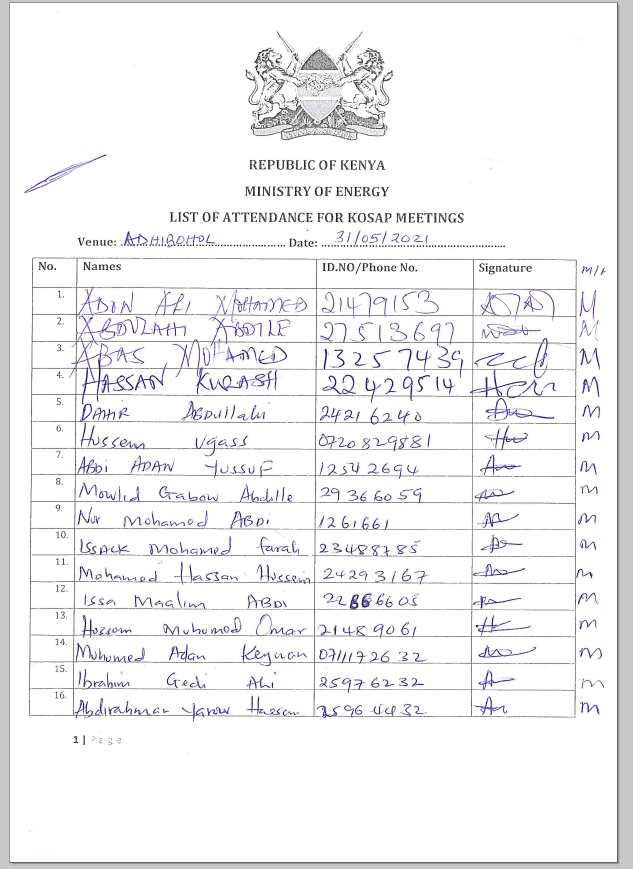 REPUBLIC OF KENYA
MINISTRY OF ENERGY
LIST OF ATTENDANCE FOR KOSAP MEETINGS
Venue: ADHIBOHOL Date: 31/05/2021
No. Names ID.NO/Phone No. Signature M/F
1. ADIN ALI MOHAMED 21479153 M
2. ABDULAHI ABDILE 27513697 M
3. ABAS MOHAMED 13257439 M
4. HASSAN KURASH 22429514 M
5. DAHIR Abdullahi 24216240 M
6. Hussein Ugass 0720829881 M
7. ABDi ADAN YUSSUF 12542694 M
8. Mowlid Gabow Abdille 29366059 M
9. Nur Mohamed ABDi 1261661 M
10. ISSACK Mohamed farah 23488785 M
11. Mohamed Hassan Hussein 24293167 M
12. Issa Maalim ABDI M
13. Muhumed Omar 21489061 M
14. Muhumed Adan Keynan 0711172632 M
15. Ibrahim Gedi Ali 25976232 M
16. Abdirahman Yarow 25964432 M
1 | Page